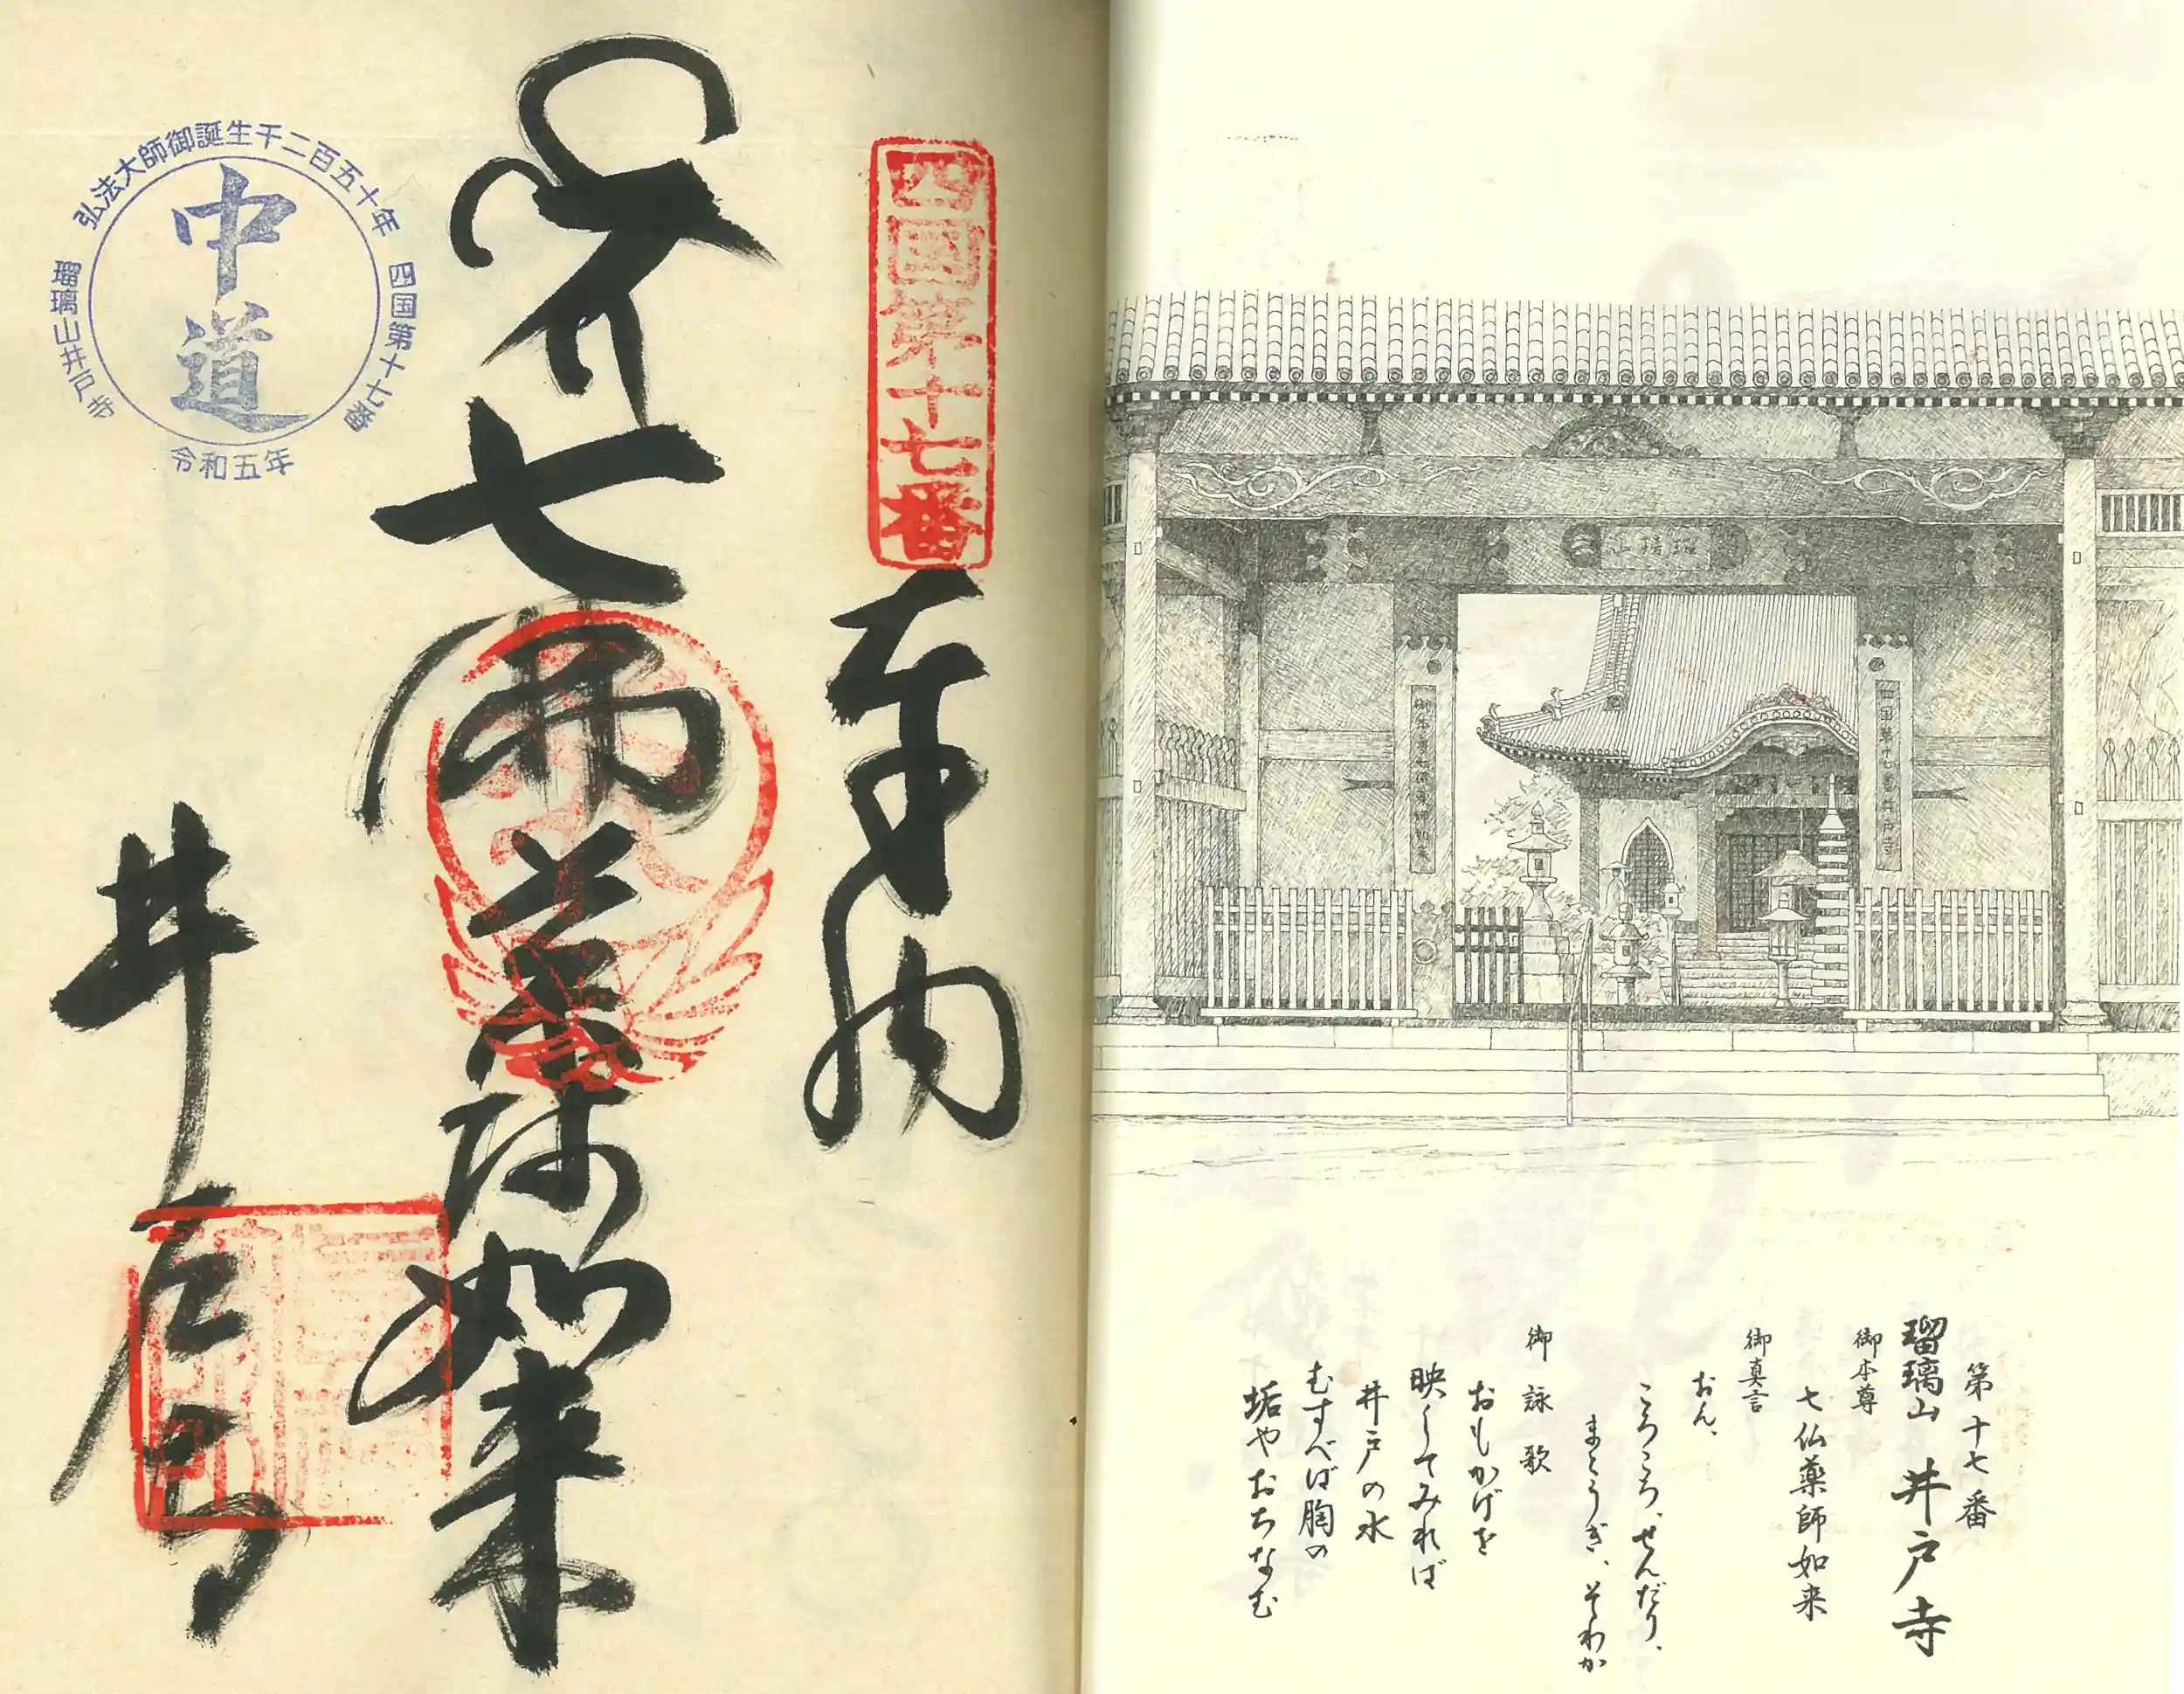 第十七番
瑠璃山 井戸寺
御本尊
七仏薬師如来
御真言
おん、
ころころ、せんだり、
まとうぎ、そわか
御詠歌
おもかげを
映してみれば
井戸の水
むすべば胸の
垢やおちなむ
瑠璃山
四国第十七番井戸寺
四国第十七番
奉納
七佛薬師如来
井戸寺
弘法大師御誕生千二百五十年
四国第十七番
瑠璃山井戸寺
中道
令和五年